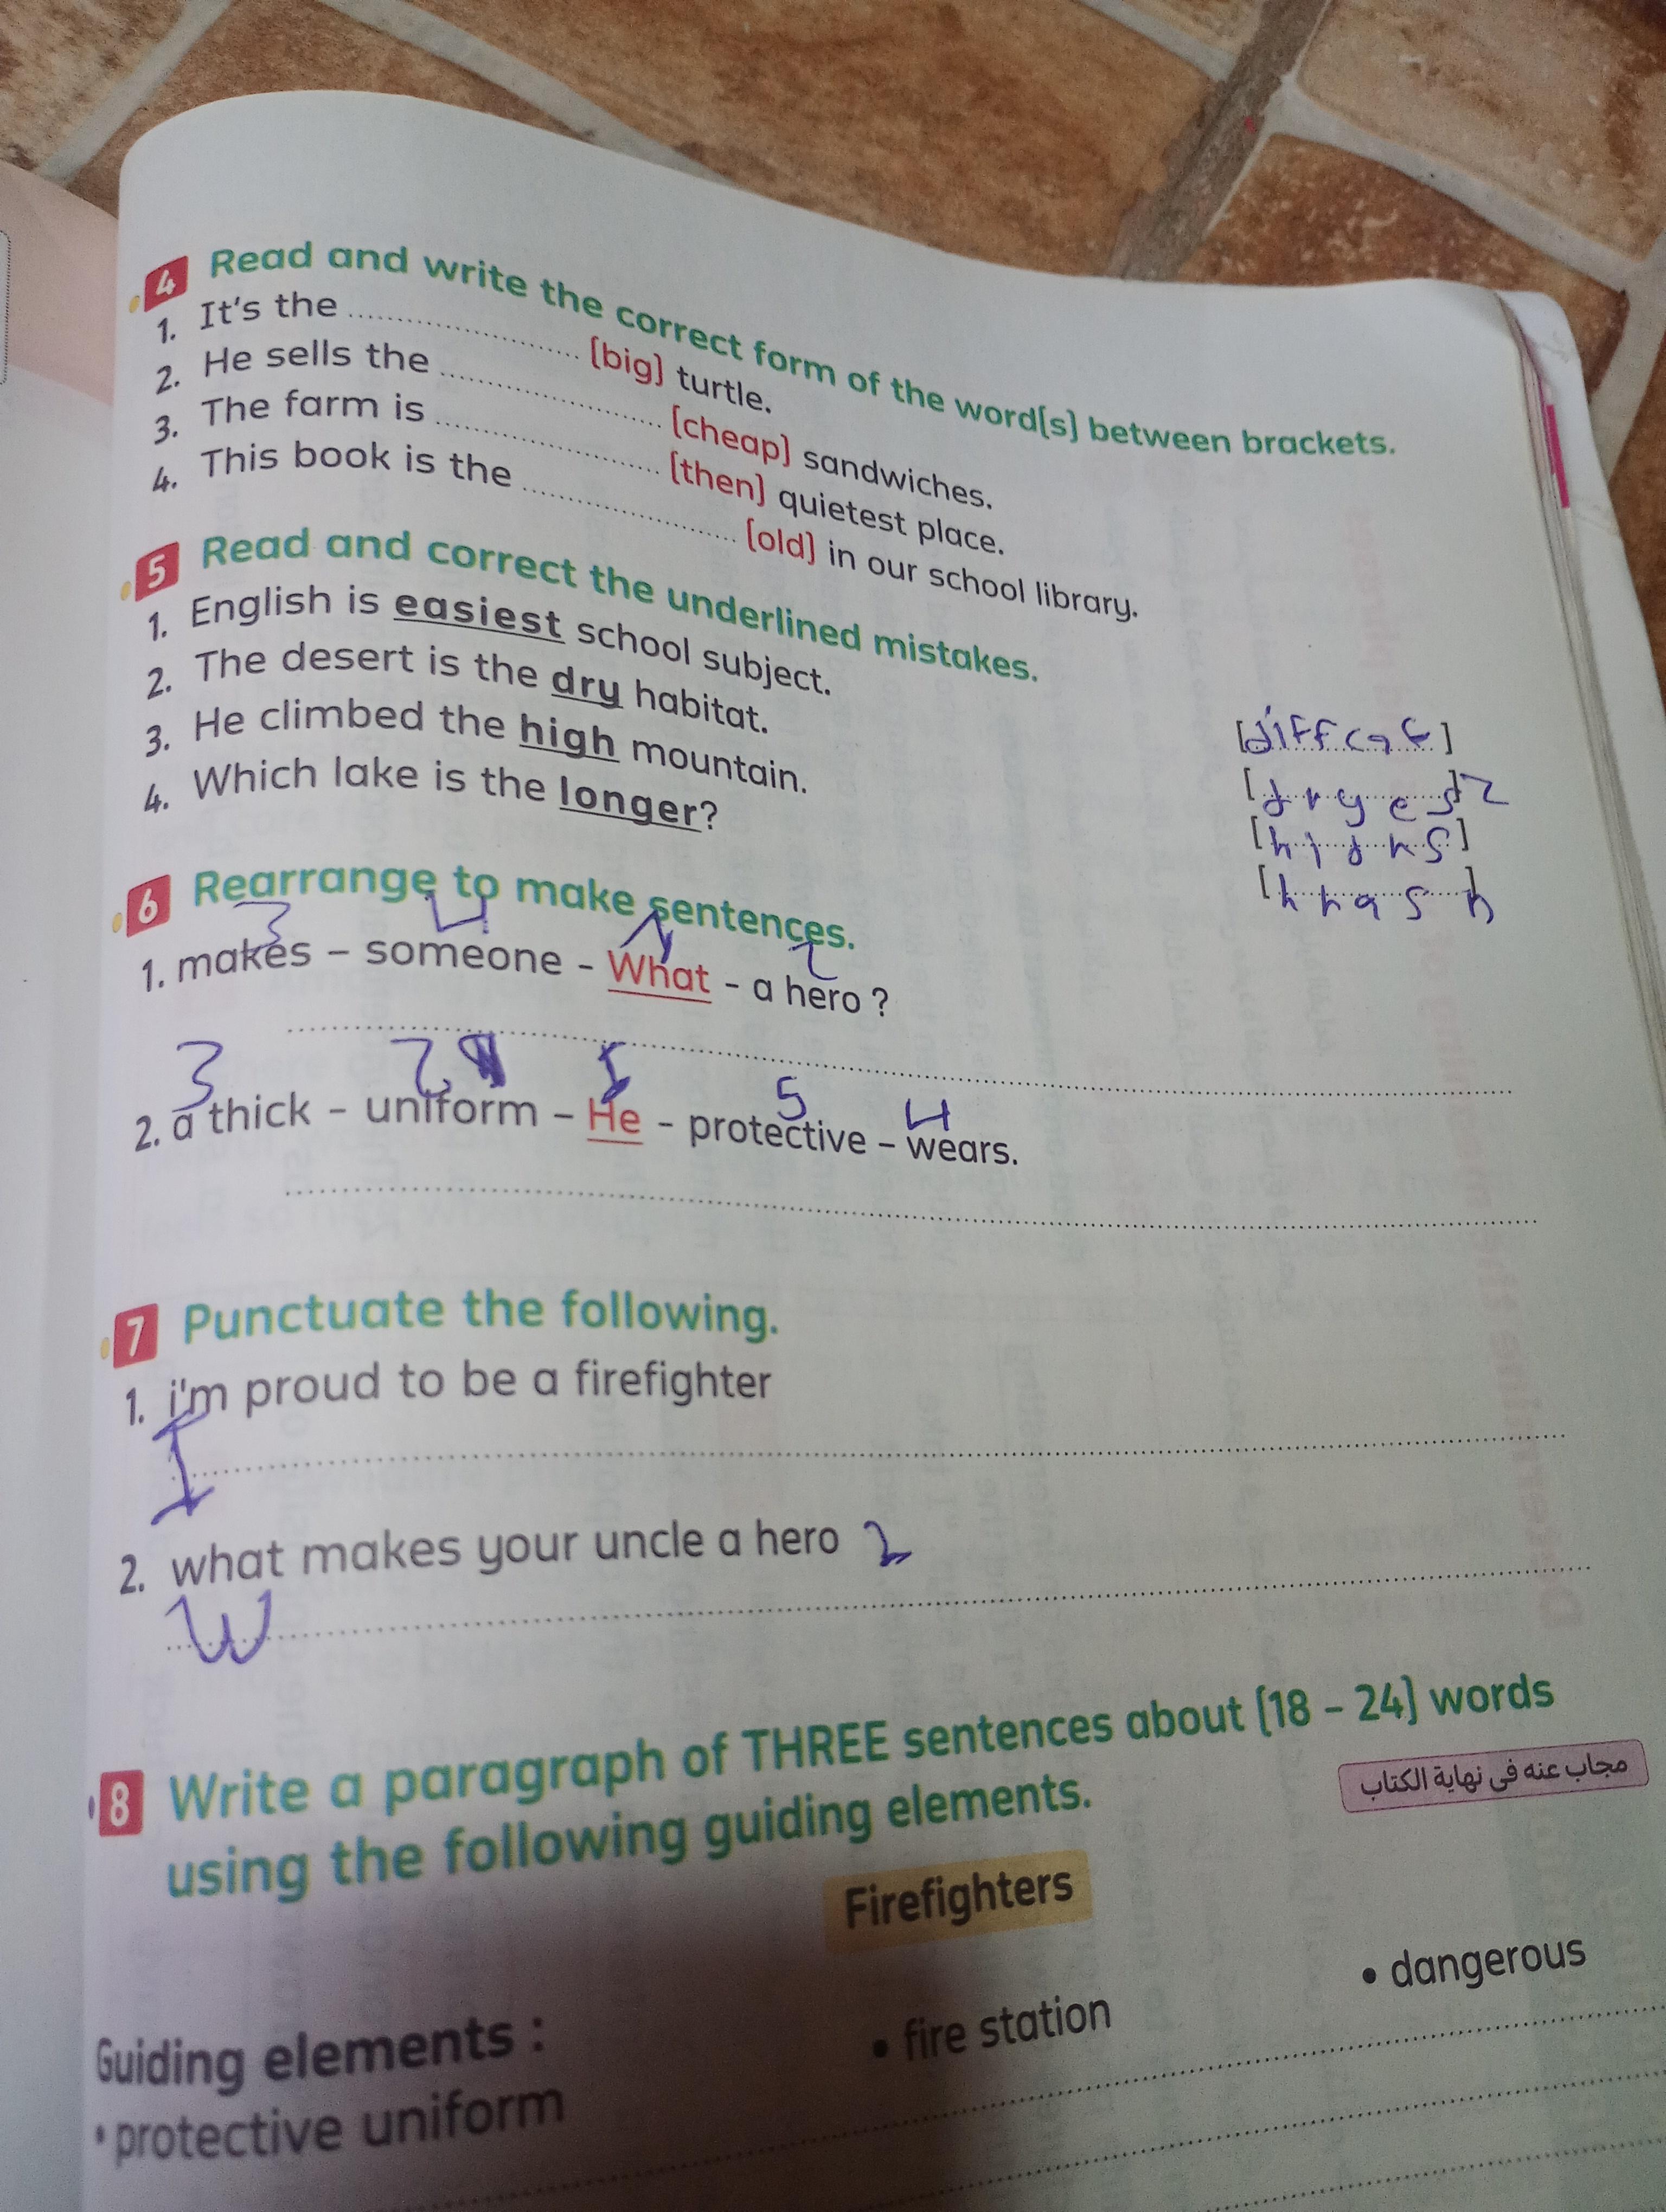 4 Read and write the correct form of the word(s) between brackets.
1. It's the ........................ (big) turtle.
2. He sells the ........................ (cheap) sandwiches.
3. The farm is ........................ (then) quietest place.
4. This book is the ........................ (old) in our school library.
5 Read and correct the underlined mistakes.
1. English is easiest school subject.
2. The desert is the dry habitat.
3. He climbed the high mountain.
4. Which lake is the longer?
6 Rearrange to make sentences.
3 4 1 2
1. makes – someone – What – a hero ?
3 2 1 5 4
2. a thick – uniform – He – protective – wears.
7 Punctuate the following.
1. i'm proud to be a firefighter
I
2. what makes your uncle a hero
W
8 Write a paragraph of THREE sentences about (18 – 24) words
using the following guiding elements.
مجاب عنه فى نهاية الكتاب
Firefighters
Guiding elements :
• protective uniform • fire station • dangerous